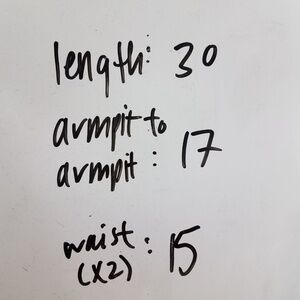 length: 30
armpit to
armpit : 17
waist : 15
(x2)